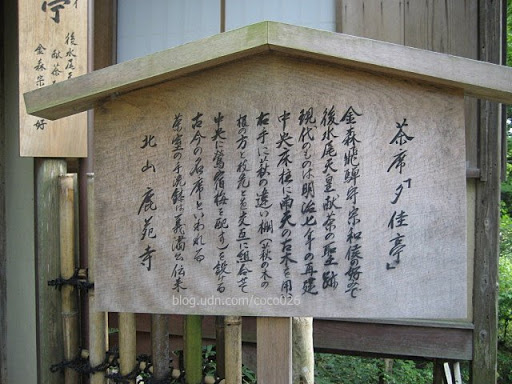 茶席「夕佳亭」
金森飛騨守宗和侯の好みで
後水尾天皇献茶の聖跡
現代のものは明治七年の再建
中央床柱に南天の古木を用い
右手に萩の違い棚(萩の木の
根の方と枝先とを交互に組合せて
中央に鶯宿梅を配す)を設ける
古今の名席といわれる
茶室の手洗鉢は義満公伝来
北山 鹿苑寺
亭
後水尾天
献茶
金森宗
好
blog.udn.com/coco026